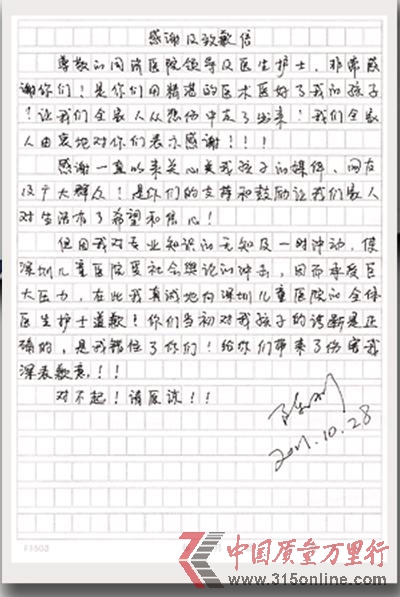 感谢及致歉信
尊敬的同济医院领导及医生护士，非常感
谢你们！是你们用精湛的医术医好了我的孩子
！让我们全家人从悲伤中走了出来！我们全家
人由衷地对你们表示感谢！！！
感谢一直以来关心关我孩子的媒体、网友
及广大群众！是你们的支持和鼓励让我们家人
对生活有了希望和信心！
但因我对专业知识的无知及一时冲动，使
深圳儿童医院受社会舆论的冲击，因而承受巨
大压力，在此我真诚地向深圳儿童医院的全体
医生护士道歉！你们当初对我孩子的诊断是正
确的，是我错怪了你们！给你们带来了伤害我
深表歉意！！！
对不起！请原谅！！
2011.10.28
中国质量万里行
www.315online.com